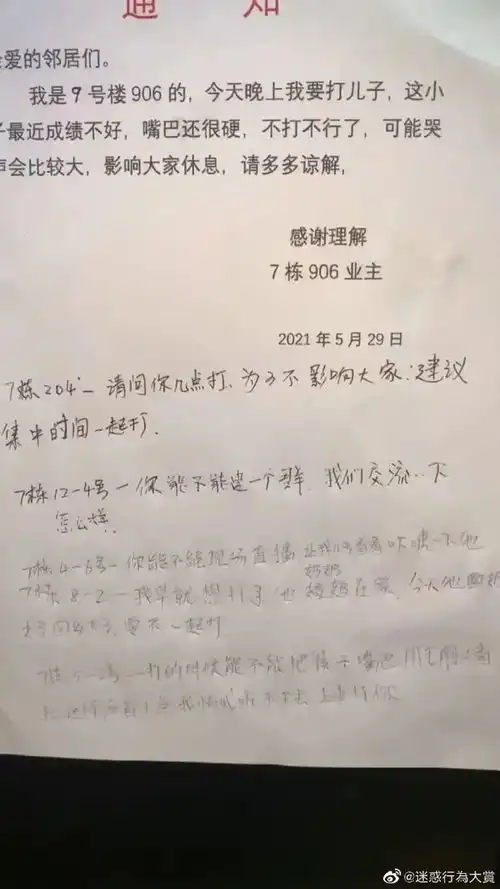 通 知
爱的邻居们。
我是9号楼906的，今天晚上我要打儿子，这小
子最近成绩不好，嘴巴还很硬，不打不行了，可能哭
声会比较大，影响大家休息，请多多谅解，
感谢理解
7栋906业主
2021年5月29日
7栋204－请问你几点打，为了不影响大家：建议
集中时间一起打．
7栋12-4号－你能不能建一个群，我们交流一下
怎么样．
7栋4-8号－你能不能现场直播 让我儿子看看 吓唬一下他
7栋8-2－我早就想打了 他 奶奶 在家，今天他
一起打
7栋
@迷惑行為大賞